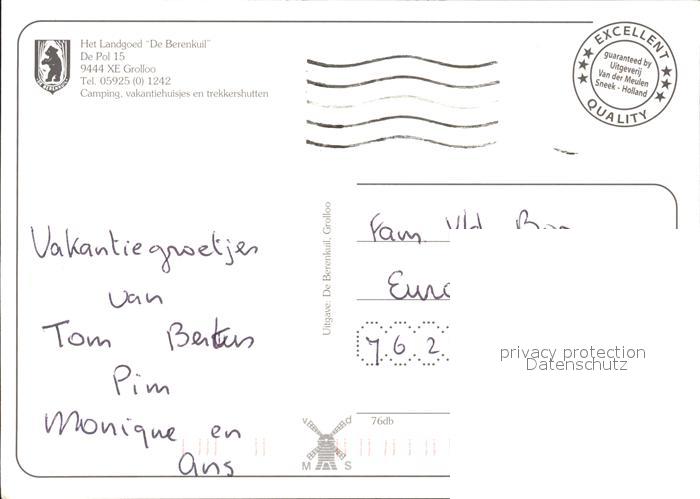 Het Landgoed "De Berenkuil"
De Pol 15
9444 XE Grolloo
Tel. 05925 (0) 1242
Camping, vakantiehuisjes en trekkershutten
EXCELLENT
guaranteed by
Uitgeverij
Van der Meulen
Sneek - Holland
QUALITY
Vakantiegroetjes
van
Tom Bertus
Pim
Monique en
Ans
Uitgave: De Berenkuil, Grolloo
Fam. v/d
7 6 2
privacy protection
Datenschutz
76db
v d
M S